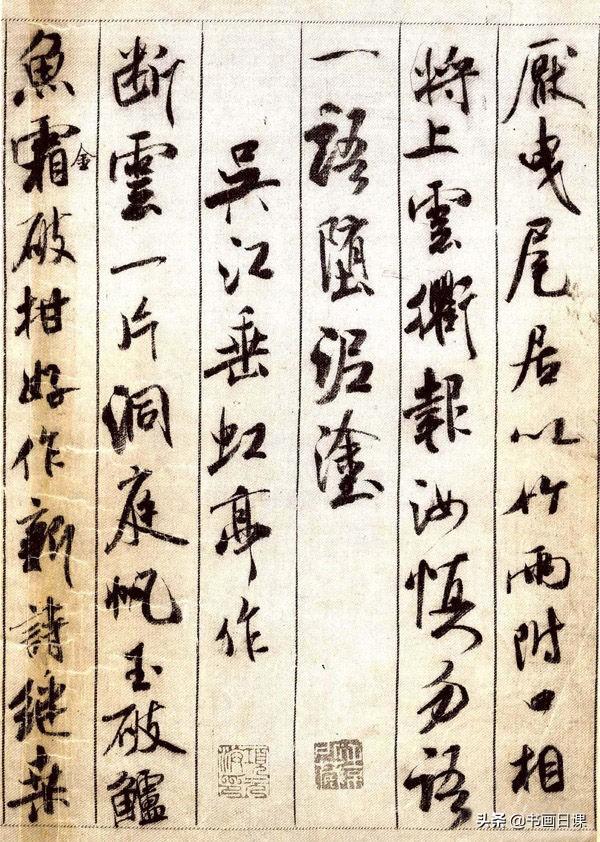 厭曳尾居以竹兩附口相
將上雲衢報汝慎勿語
一語墮泥塗
吳江垂虹亭作
断雲一片洞庭帆玉破鱸
魚霜破柑好作新詩繼桒
金
头条 @书画日课